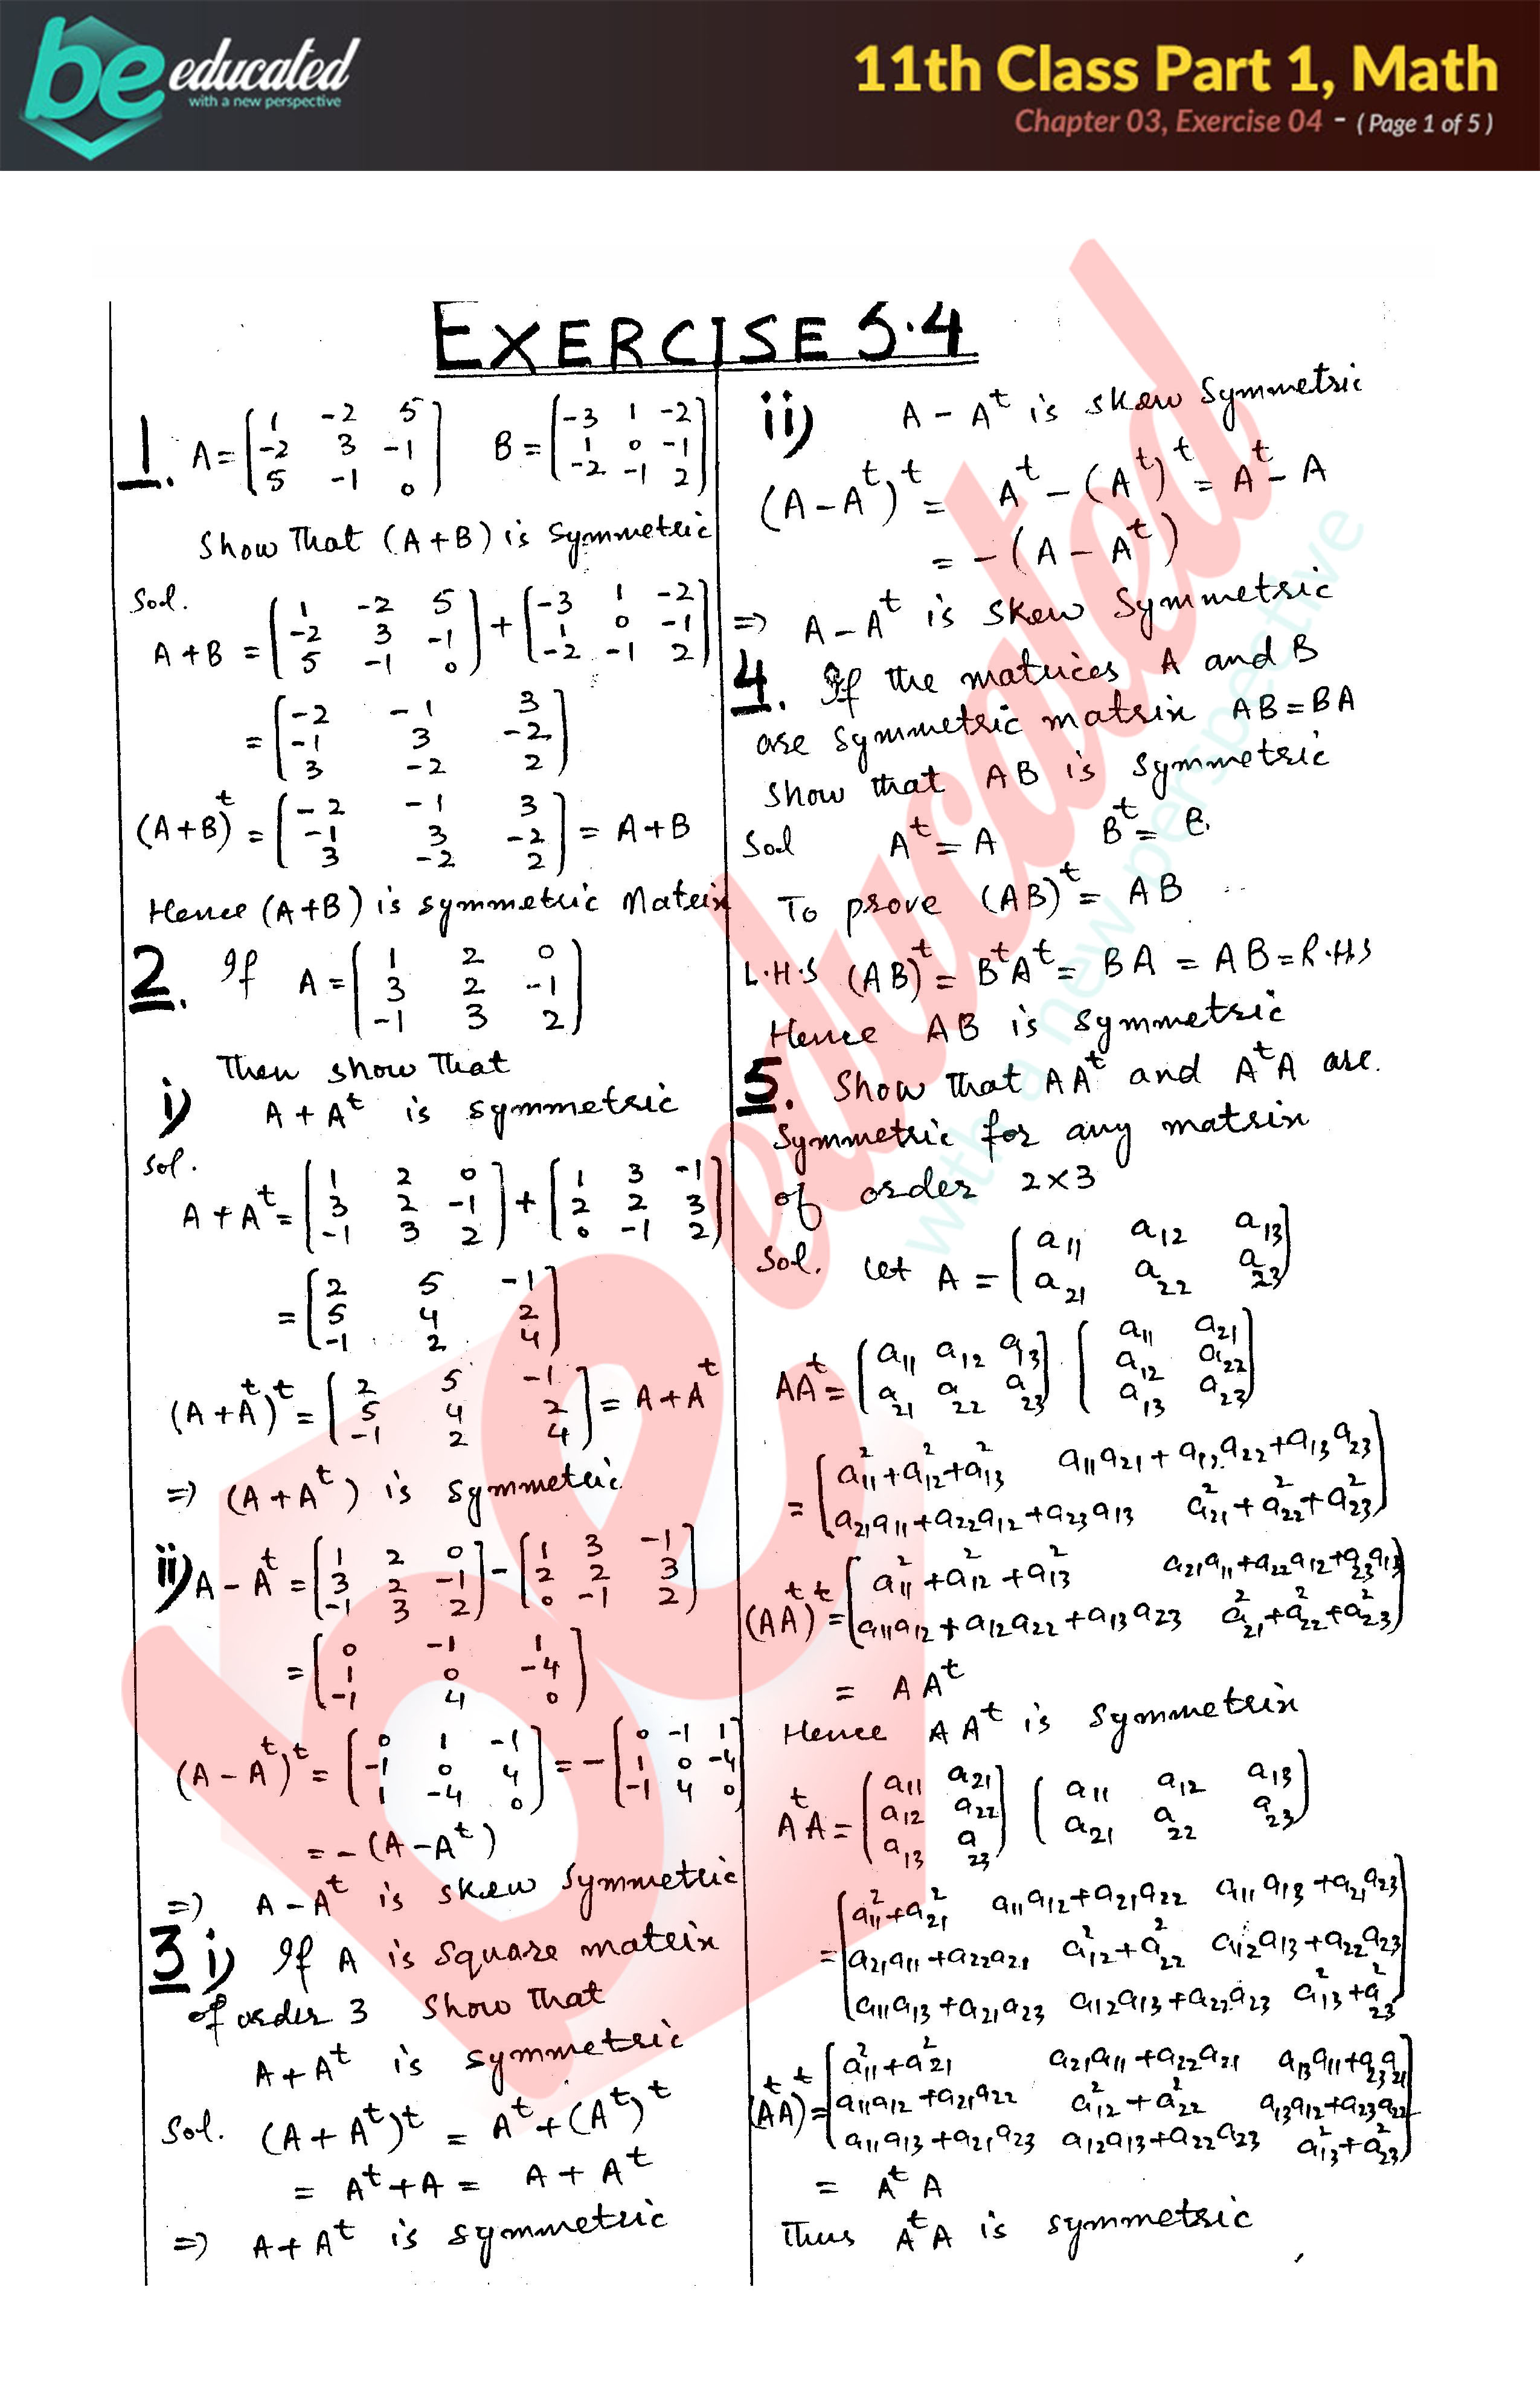 be educated
with a new perspective
11th Class Part 1, Math
Chapter 03, Exercise 04 - ( Page 1 of 5 )
EXERCISE 5.4
1. A = [1 -2 5; -2 3 -1; 5 -1 0] B = [-3 1 -2; 1 0 -1; -2 -1 2]
Show That (A+B) is Symmetric
Sol.
A+B = [1 -2 5; -2 3 -1; 5 -1 0] + [-3 1 -2; 1 0 -1; -2 -1 2]
= [-2 -1 3; -1 3 -2; 3 -2 2]
(A+B)^t = [-2 -1 3; -1 3 -2; 3 -2 2] = A+B
Hence (A+B) is symmetric Matrix
2. If A = [1 2 0; 3 2 -1; -1 3 2]
Then show That
i) A + A^t is symmetric
Sol.
A + A^t = [1 2 0; 3 2 -1; -1 3 2] + [1 3 -1; 2 2 3; 0 -1 2]
= [2 5 -1; 5 4 2; -1 2 4]
(A+A^t)^t = [2 5 -1; 5 4 2; -1 2 4] = A+A^t
=> (A+A^t) is Symmetric
ii) A - A^t = [1 2 0; 3 2 -1; -1 3 2] - [1 3 -1; 2 2 3; 0 -1 2]
= [0 -1 1; 1 0 -4; -1 4 0]
(A-A^t)^t = [0 1 -1; -1 0 4; 1 -4 0] = -[0 -1 1; 1 0 -4; -1 4 0]
= -(A-A^t)
=> A-A^t is skew Symmetric
3 i) If A is Square matrix
of order 3 Show That
A+A^t is symmetric
Sol. (A+A^t)^t = A^t+(A^t)^t
= A^t+A = A+A^t
=> A+A^t is symmetric
ii) A - A^t is skew Symmetric
(A-A^t)^t = A^t-(A^t)^t = A^t-A
= -(A-A^t)
=> A-A^t is Skew Symmetric
4. If the matrices A and B
are symmetric matrix AB=BA
Show that AB is symmetric
Sol A^t = A B^t = B.
To prove (AB)^t = AB
L.H.S (AB)^t = B^tA^t = BA = AB = R.H.S
Hence AB is symmetric
5. Show That AA^t and A^tA are.
Symmetric for any matrix
of order 2×3
Sol. Let A = [a11 a12 a13; a21 a22 a23]
AA^t = [a11 a12 a13; a21 a22 a23] [a11 a21; a12 a22; a13 a23]
= [a11²+a12²+a13² a11a21+a12a22+a13a23; a21a11+a22a12+a23a13 a21²+a22²+a23²]
(AA^t)^t = [a11²+a12²+a13² a21a11+a22a12+a23a13; a11a12+a12a22+a13a23 a21²+a22²+a23²]
= AA^t
Hence AA^t is Symmetrix
A^tA = [a11 a21; a12 a22; a13 a23] [a11 a12 a13; a21 a22 a23]
= [a11²+a21² a11a12+a21a22 a11a13+a21a23; a21a11+a22a21 a12²+a22² a12a13+a22a23; a11a13+a21a23 a12a13+a22a23 a13²+a23²]
(A^tA)^t = [a11²+a21² a21a11+a22a21 a13a11+a23a21; a11a12+a21a22 a12²+a22² a13a12+a23a22; a11a13+a21a23 a12a13+a22a23 a13²+a23²]
= A^tA
Thus A^tA is symmetric
be educated
with a new perspective